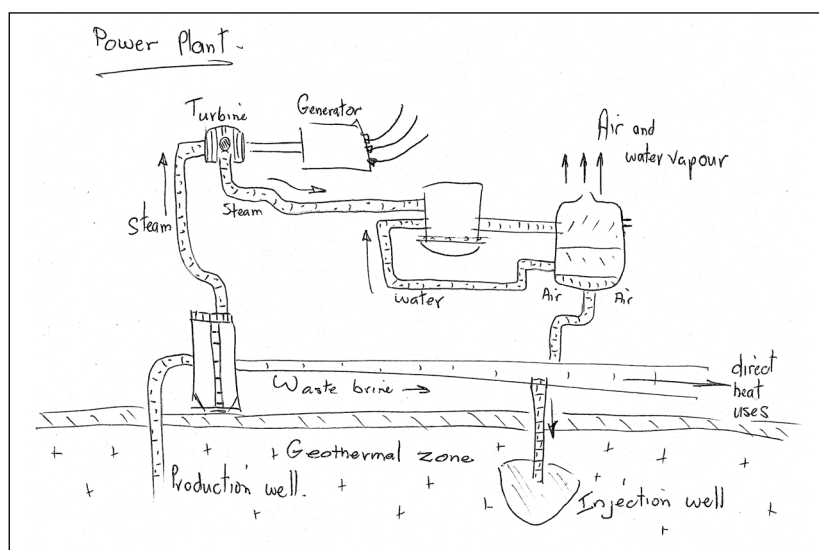 Power Plant.
Turbine
Generator
Air and
water vapour
Steam
Steam
water
Air
Air
Waste brine →
direct
heat
uses
Geothermal zone
Production well.
Injection well